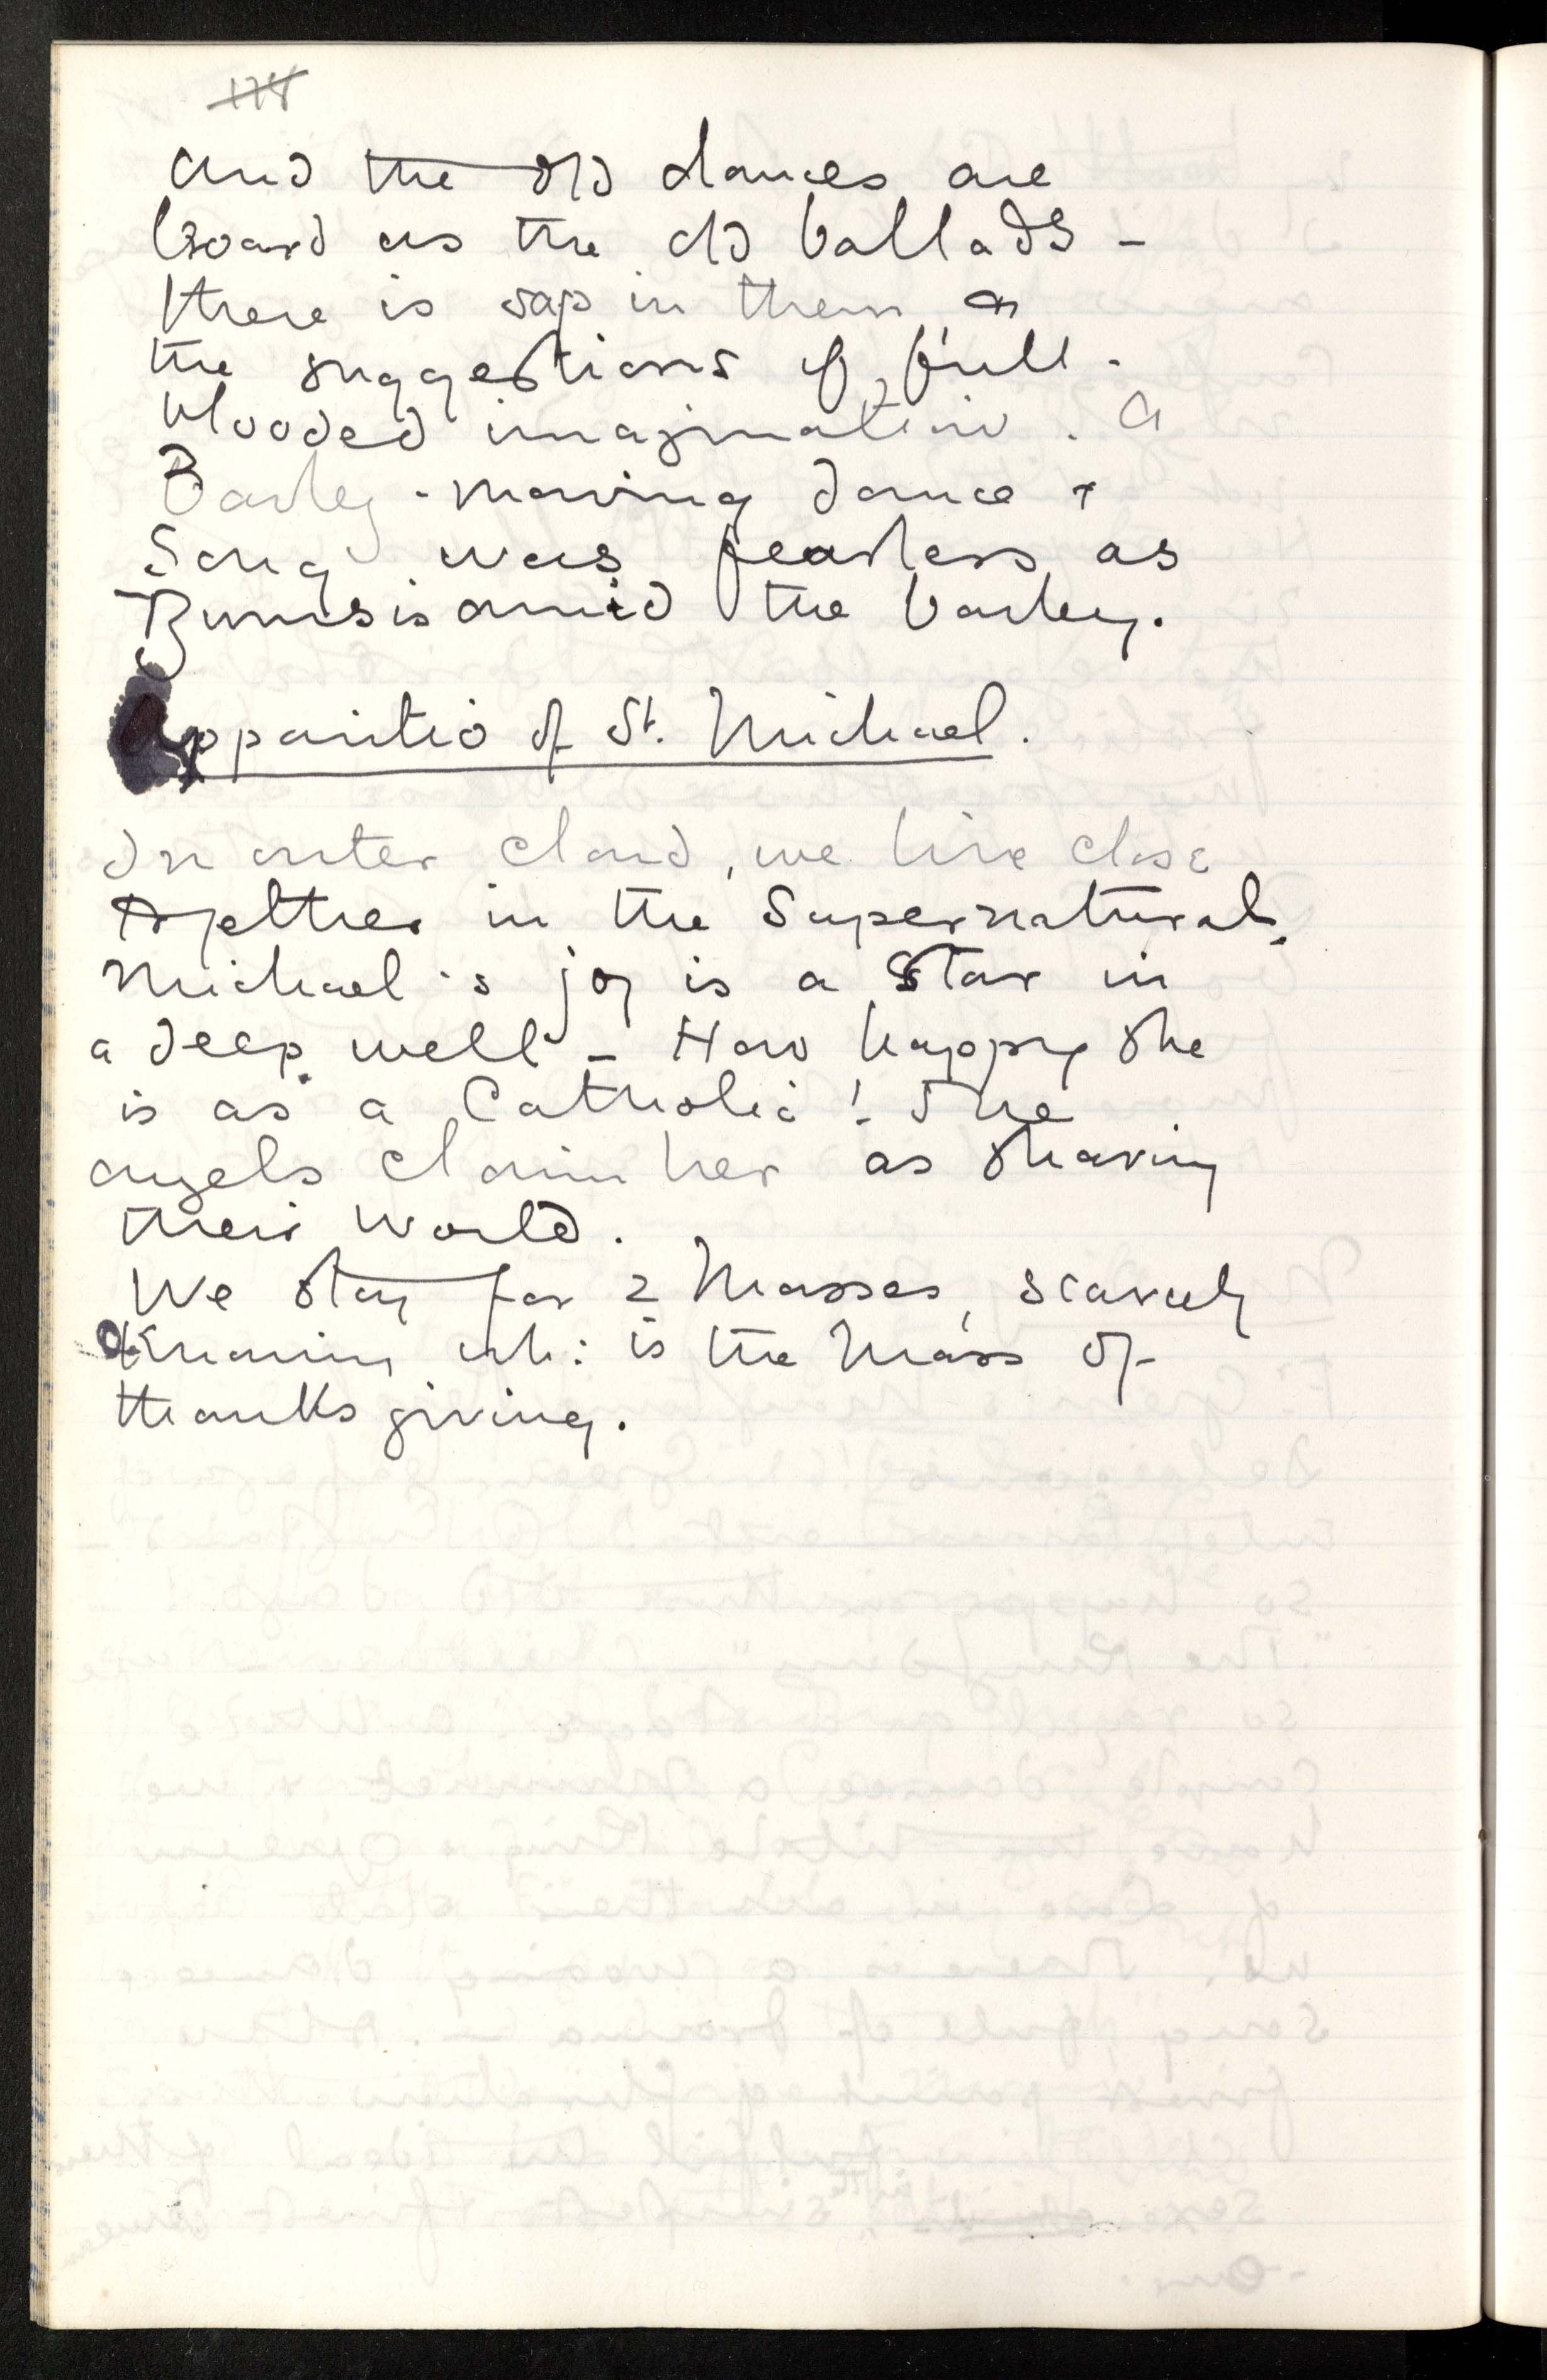 and the old dances are
broad as the old ballads -
there is sap in them &
the suggestions of full-
blooded imagination. A
Barley-mowing dance &
Song was fearless as
Burns is amid the barley.
Apparitio of St. Michael.
In outer cloud, we live close
together in the Supernatural.
Michael's joy is a Star in
a deep well - How happy she
is as a Catholic! The
angels claim her as sharing
their world.
We stay for 2 Masses, scarcely
knowing wh: is the Mass of
thanksgiving.